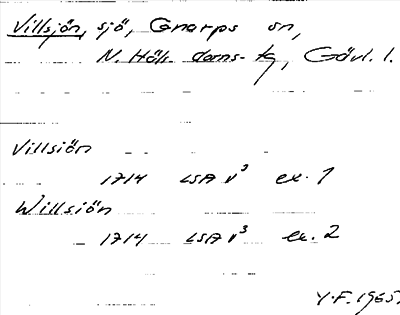 Villsjön, sjö, Gnarps sn,
N. Häls. doms- tg, Gävl. l.
Villsiön
1714 LSA V³ ex. 1
Willsiön
1714 LSA V³ ex. 2
Y.F. 1965.